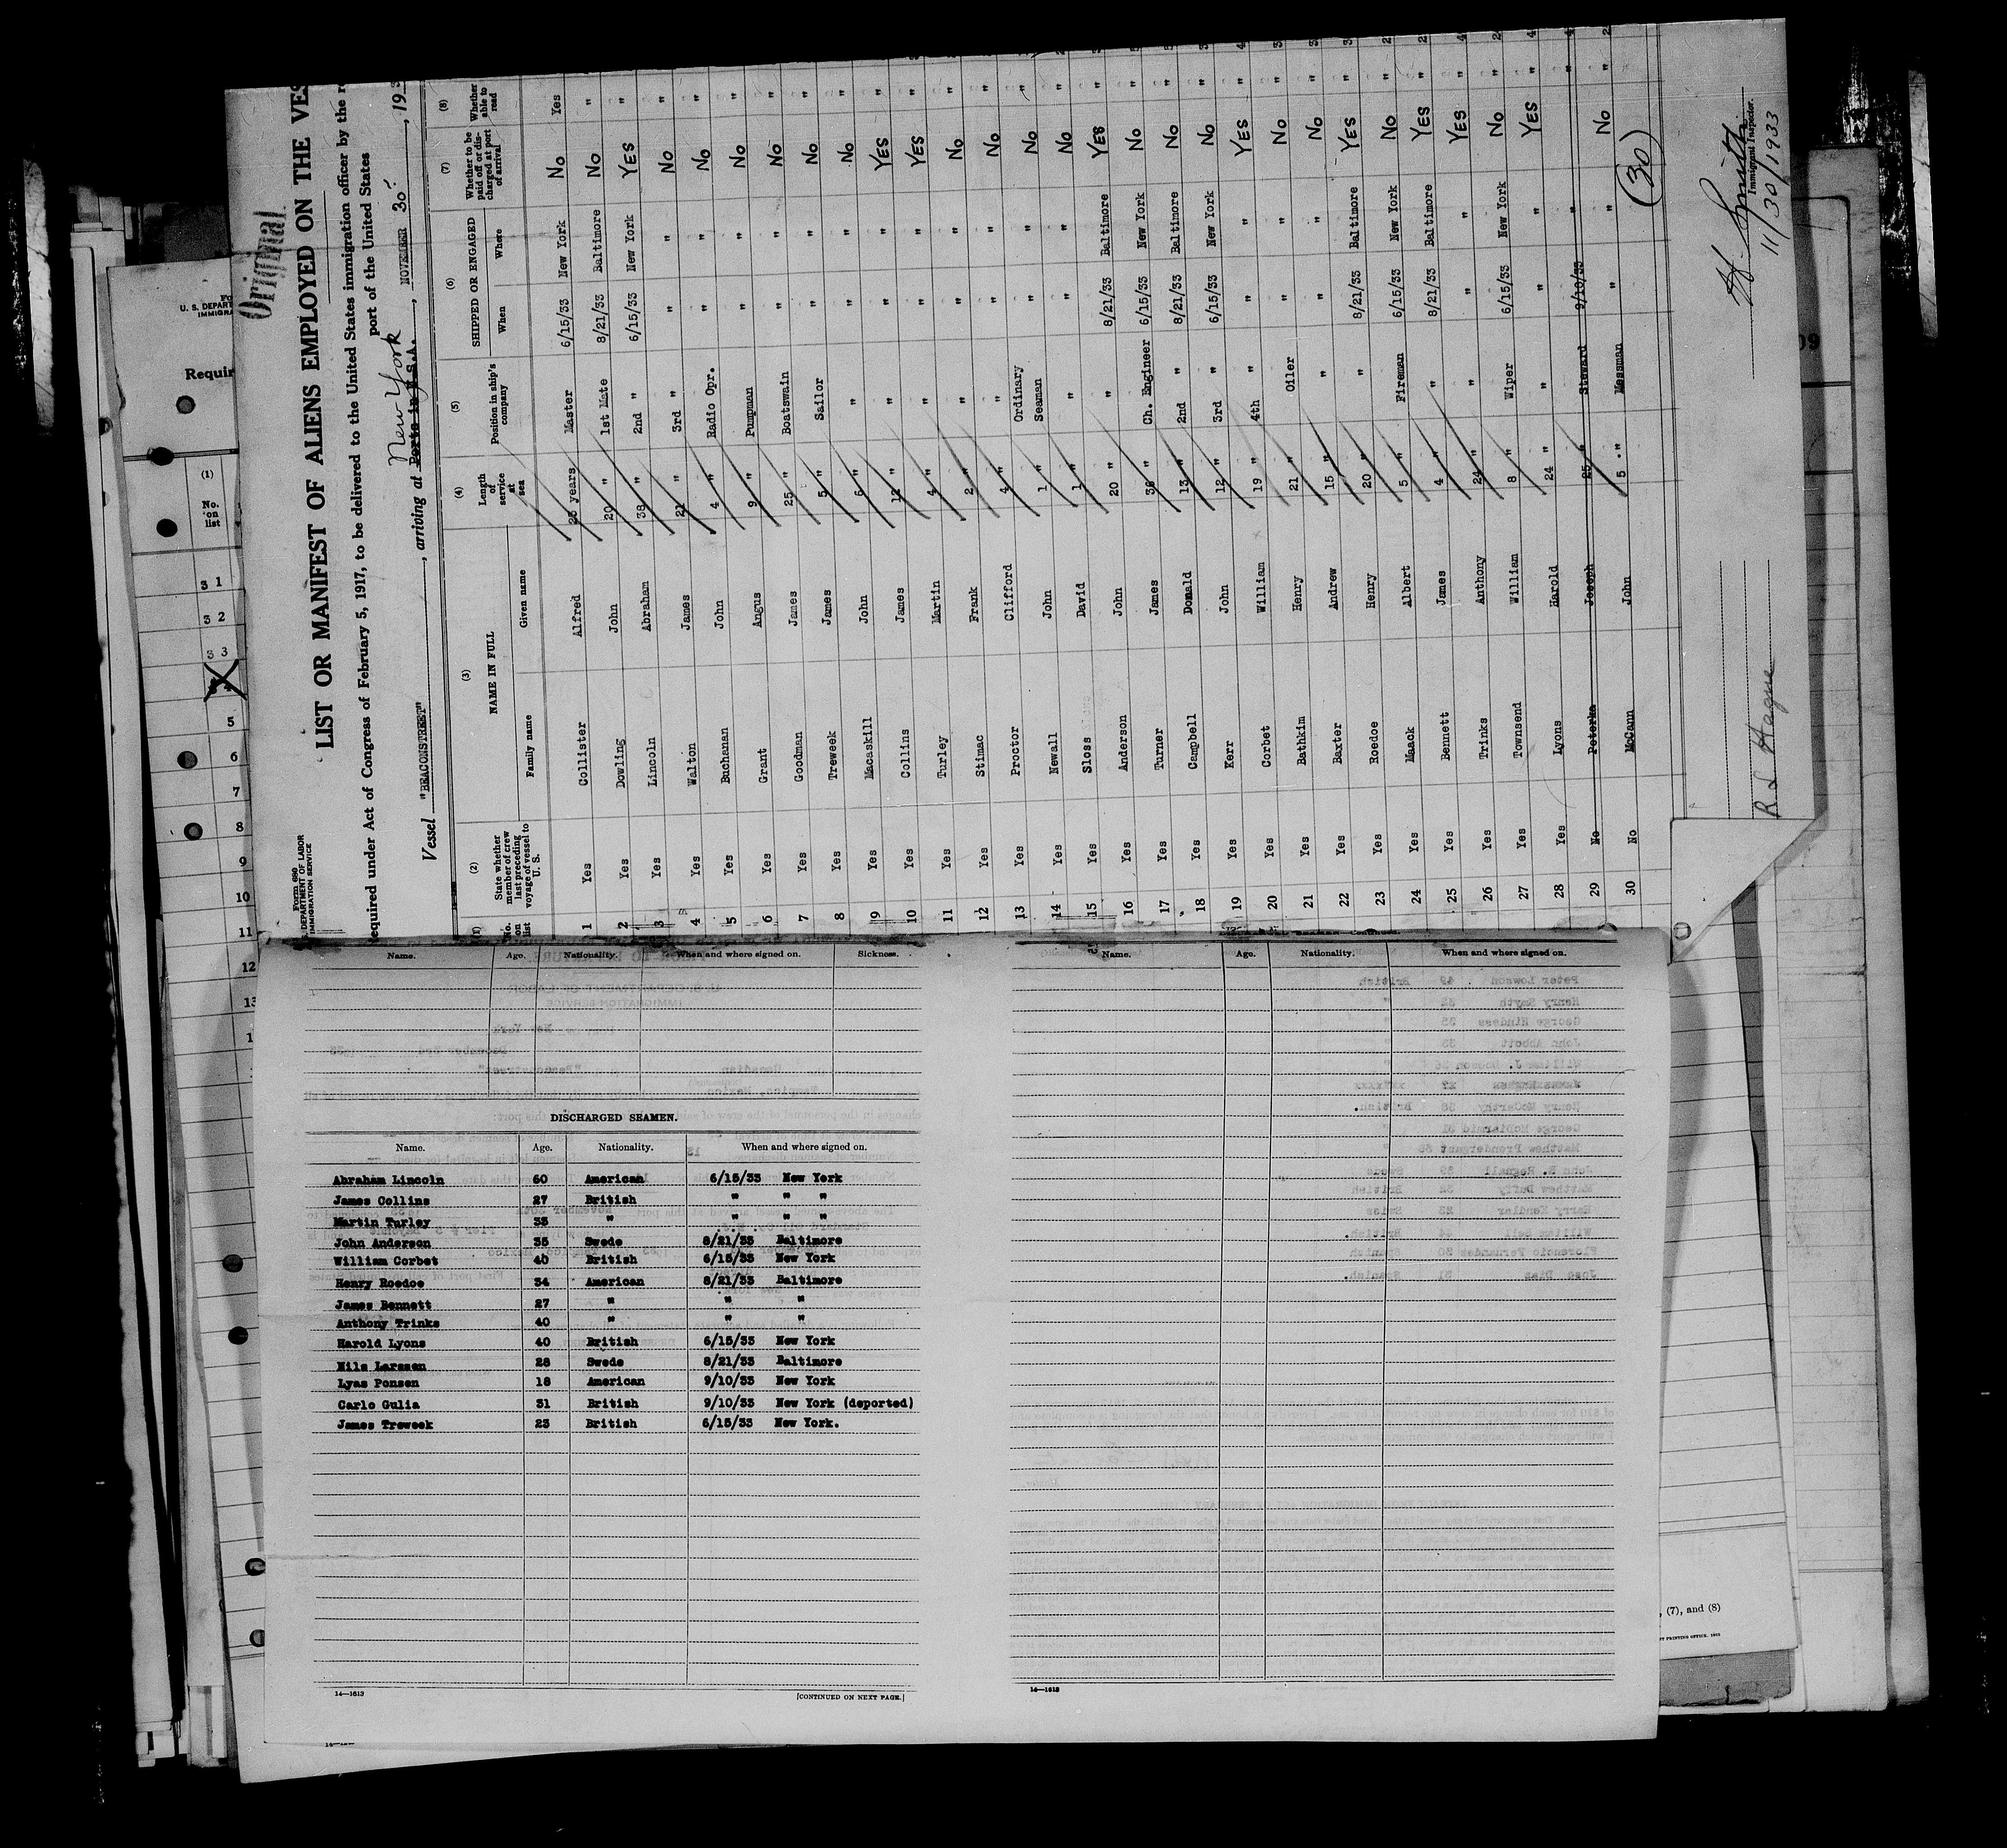 Original
Form 680
U. S. DEPARTMENT OF LABOR
IMMIGRATION SERVICE
LIST OR MANIFEST OF ALIENS EMPLOYED ON THE VES
equired under Act of Congress of February 5, 1917, to be delivered to the United States immigration officer by the re
port of the United States
Vessel "BEACONSTREET", arriving at Ports in U.S.A. New York, NOVEMBER 30, 193
(1) No. on list
(2) State whether member of crew last preceding voyage of vessel to U. S.
(3) NAME IN FULL Family name Given name
(4) Length of service at sea
(5) Position in ship's company
(6) SHIPPED OR ENGAGED When Where
(7) Whether to be paid off or discharged at port of arrival
(8) Whether able to read
1 Yes Collister Alfred 25 years Master 6/15/33 New York No Yes
2 Yes Dowling John 20 " 1st Mate 8/21/33 Baltimore No "
3 Yes Lincoln Abraham 38 " 2nd " 6/15/33 New York YES "
4 Yes Walton James 21 " 3rd " " " No "
5 Yes Buchanan John 4 " Radio Opr. " " No "
6 Yes Grant Angus 9 " Pumpman " " No "
7 Yes Goodman James 25 " Boatswain " " No "
8 Yes Treweek James 5 " Sailor " " No "
9 Yes Macaskill John 6 " " " " No "
10 Yes Collins James 12 " " " " YES "
11 Yes Turley Martin 4 " " " " YES "
12 Yes Stimac Frank 2 " " " " No "
13 Yes Proctor Clifford 4 " " " " No "
14 Yes Newall John 1 " Ordinary Seaman " " No "
15 Yes Sloss David 1 " " " " No "
16 Yes Anderson John 20 " " 8/21/33 Baltimore YES "
17 Yes Turner James 36 " Ch. Engineer 6/15/33 New York No "
18 Yes Campbell Donald 13 " 2nd " 8/21/33 Baltimore No "
19 Yes Kerr John 12 " 3rd " 6/15/33 New York No "
20 Yes Corbet William 19 " 4th " " " YES "
21 Yes Bathkim Henry 21 " Oiler " " No "
22 Yes Baxter Andrew 15 " " " " No "
23 Yes Roedoe Henry 20 " " 8/21/33 Baltimore YES "
24 Yes Maack Albert 5 " Fireman 6/15/33 New York No "
25 Yes Bennett James 4 " " 8/21/33 Baltimore YES "
26 Yes Trinks Anthony 24 " " " " YES "
27 Yes Townsend William 8 " Wiper 6/15/33 New York No "
28 Yes Lyons Harold 24 " " " " YES "
29 No Peterka Joseph 25 " Steward 9/10/33 " "
30 No McCann John 5 " Messman " " No "
(30)
R S Hague
Immigrant Inspector.
11/30/1933
U. S. DEPART
IMMIGRA
Requir
(1)
No. on list
1
2
3
4
5
6
7
8
9
10
11
12
13
Name. Age. Nationality. When and where signed on. Sickness.
DISCHARGED SEAMEN.
Name. Age. Nationality. When and where signed on.
Abraham Lincoln 60 American 6/15/33 New York
James Collins 27 British " " "
Martin Turley 33 " " " "
John Anderson 35 Swede 8/21/33 Baltimore
William Corbet 40 British 6/15/33 New York
Henry Roedoe 34 American 8/21/33 Baltimore
James Bennett 27 " " "
Anthony Trinks 40 " " "
Harold Lyons 40 British 6/15/33 New York
Nils Larssen 28 Swede 8/21/33 Baltimore
Lyas Ponsen 18 American 9/10/33 New York
Carlo Gulia 31 British 9/10/33 New York (deported)
James Treweek 23 British 6/15/33 New York.
14—1613
[CONTINUED ON NEXT PAGE.]
Name. Age. Nationality. When and where signed on.
14—1613
, (7), and (8)
09